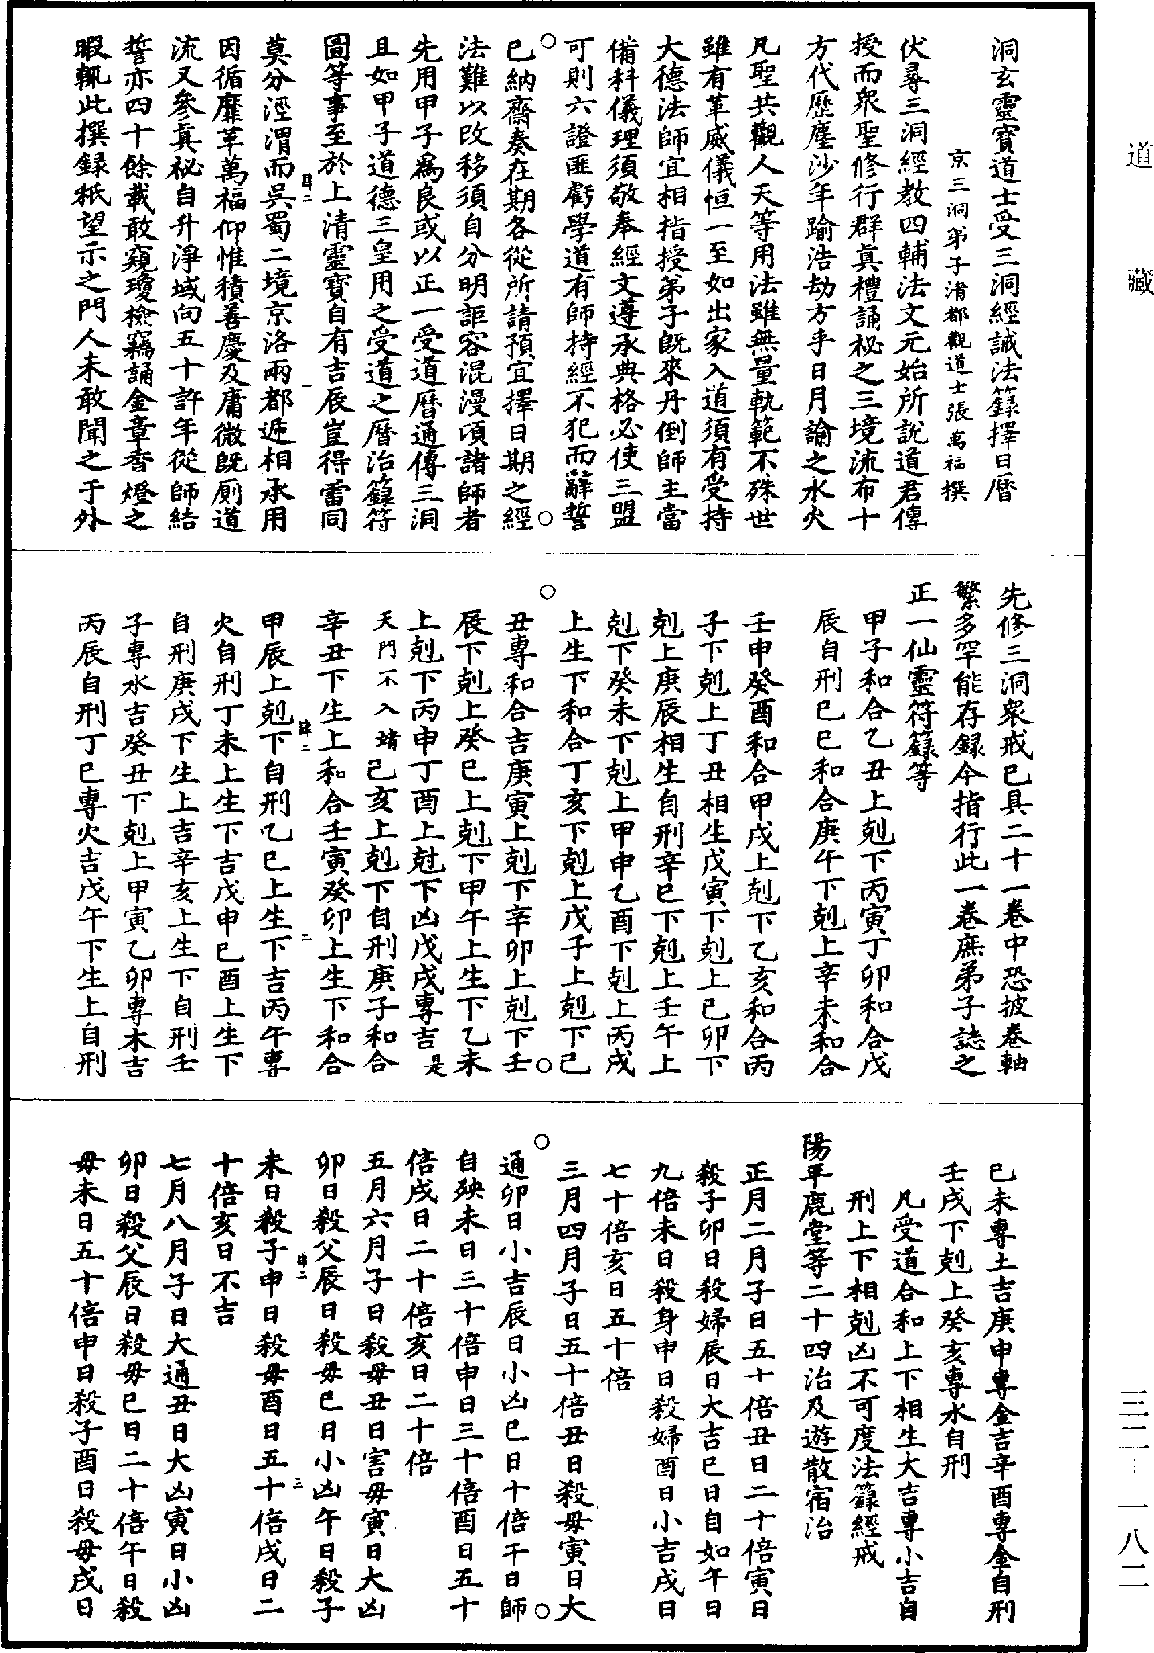 道藏
洞玄靈寶道士受三洞經誡法籙擇日曆
京三洞弟子清都觀道士張萬福撰
伏尋三洞經教四輔法文元始所說道君傳
授而衆聖修行群真禮誦祕之三境流布十
方代歷塵沙年踰浩劫方乎日月論之水火
凡聖共觀人天等用法雖無量軌範不殊世
雖有革威儀恒一至如出家入道須有受持
大德法師宜相指授弟子旣來丹倒師主當
備科儀理須敬奉經文遵承典格必使三盟
可則六證匪虧學道有師持經不犯而辭誓
已納齋奏在期各從所請預宜擇日期之經
法難以改移須自分明詎容混漫頃諸師者
先用甲子爲良或以正一受道曆通傳三洞
且如甲子道德三皇用之受道之曆治籙符
圖等事至於上清靈寶自有吉辰豈得雷同
莫分涇渭而吳蜀二境京洛兩都遞相承用
因循靡革萬福仰惟積善慶及庸微旣廁道
流又參真祕自升淨域向五十許年從師結
誓亦四十餘載敢窺瓊檢竊誦金章香燈之
暇輒此撰録秖望示之門人未敢聞之于外
先修三洞衆戒已具二十一卷中恐披卷軸
繁多罕能存録今指行此一卷庶弟子誌之
正一仙靈符籙等
甲子和合乙丑上剋下丙寅丁卯和合戊
辰自刑巳巳和合庚午下剋上辛未和合
壬申癸酉和合甲戌上剋下乙亥和合丙
子下剋上丁丑相生戊寅下剋上巳卯下
剋上庚辰相生自刑辛巳下剋上壬午上
剋下癸未下剋上甲申乙酉下剋上丙戌
上生下和合丁亥下剋上戊子上剋下巳
丑專和合吉庚寅上剋下辛卯上剋下壬
辰下剋上癸巳上剋下甲午上生下乙未
上剋下丙申丁酉上剋下凶戊戌專吉是
天門不入靖己亥上剋下自刑庚子和合
辛丑下生上和合壬寅癸卯上生下和合
甲辰上剋下自刑乙巳上生下吉丙午專
火自刑丁未上生下吉戊申巳酉上生下
自刑庚戌下生上吉辛亥上生下自刑壬
子專水吉癸丑下剋上甲寅乙卯專木吉
丙辰自刑丁巳專火吉戊午下生上自刑
巳未專土吉庚申專金吉辛酉專金自刑
壬戌下剋上癸亥專水自刑
凡受道合和上下相生大吉專小吉自
刑上下相剋凶不可度法籙經戒
陽平鹿堂等二十四治及遊散宿治
正月二月子日五十倍丑日二十倍寅日
殺子卯日殺婦辰日大吉巳日自如午日
九倍未日殺身申日殺婦酉日小吉戌日
七十倍亥日五十倍
三月四月子日五十倍丑日殺毋寅日大
通卯日小吉辰日小凶巳日十倍午日師
自殃未日三十倍申日三十倍酉日五十
倍戌日二十倍亥日二十倍
五月六月子日殺毋丑日害毋寅日大凶
卯日殺父辰日殺毋巳日小凶午日殺子
未日殺子申日殺毋酉日五十倍戌日二
十倍亥日不吉
七月八月子日大通丑日大凶寅日小凶
卯日殺父辰日殺毋巳日二十倍午日殺
毋未日五十倍申日殺子酉日殺毋戌日
三二-一八二